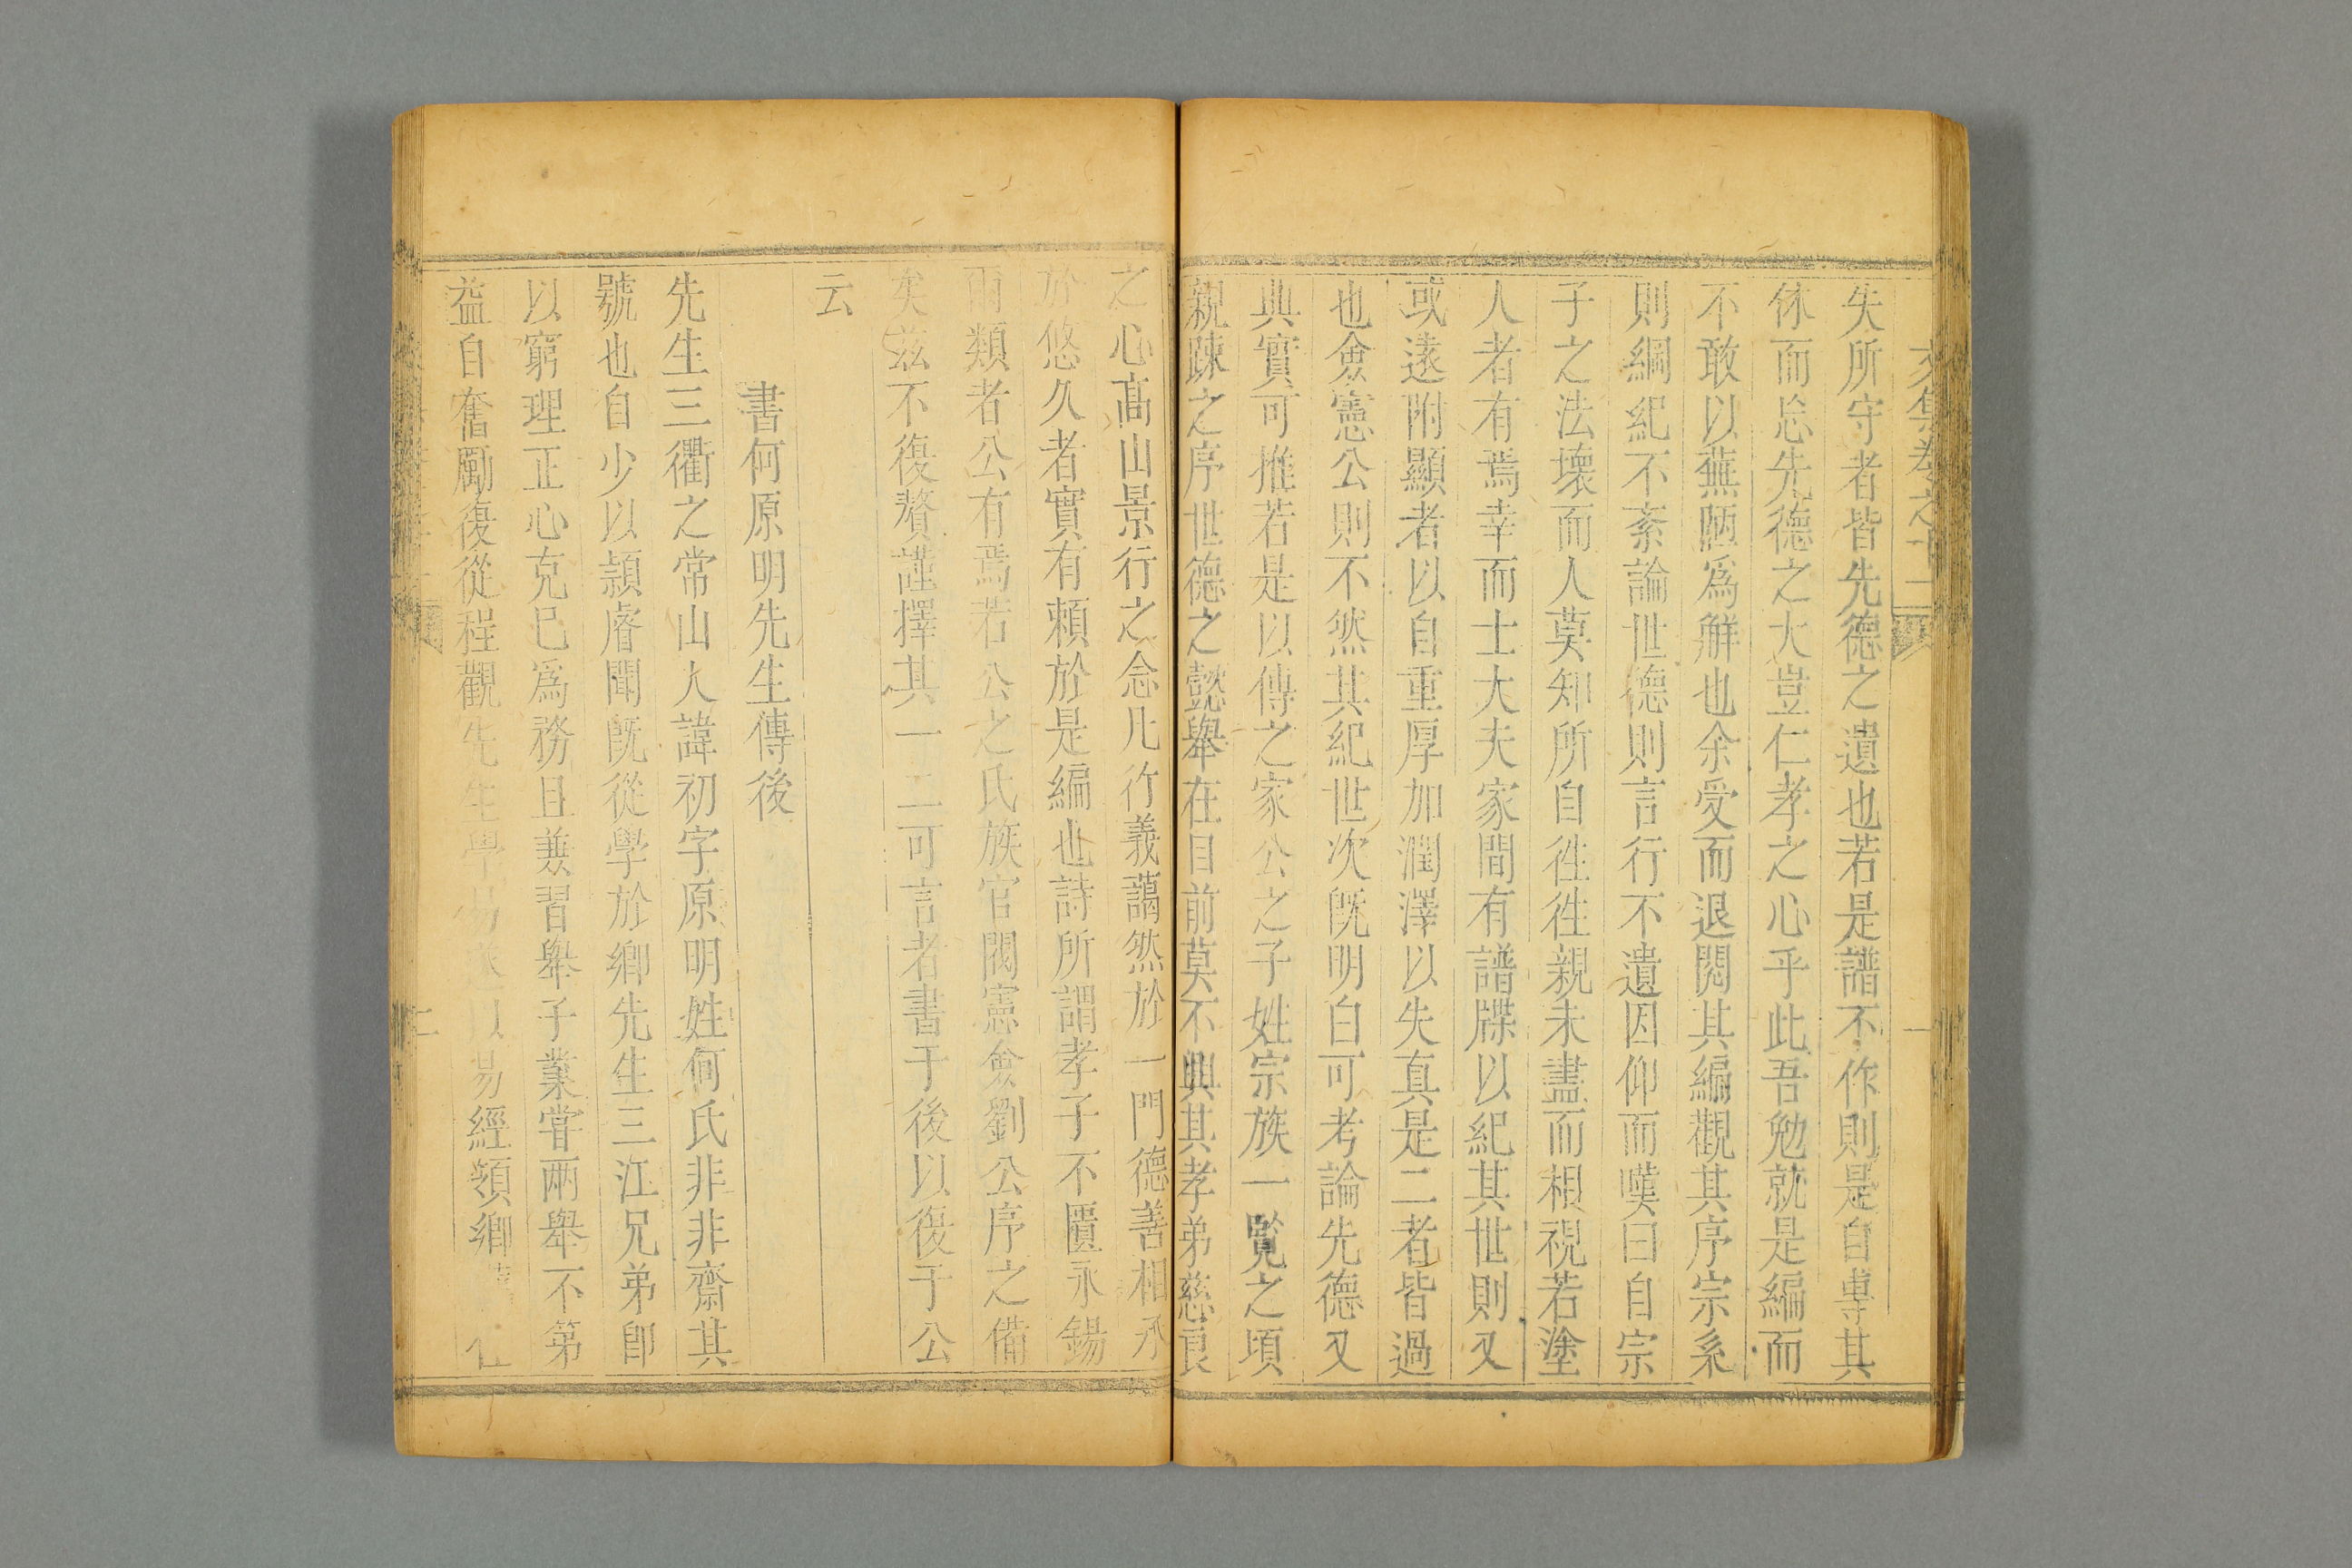 文集卷之十二
一
失所守者皆先德之遺也若是譜不作則是自專其
休而忘先德之大豈仁孝之心乎此吾勉就是編而
不敢以蕪陋爲觧也余受而退閱其編觀其序宗系
則綱紀不紊論世德則言行不遺因仰而嘆曰自宗
子之法壞而人莫知所自徃徃親未盡而相視若塗
人者有焉幸而士大夫家間有譜牒以紀其世則又
或遠附顯者以自重厚加潤澤以失真是二者皆過
也僉憲公則不然其紀世次旣明白可考論先德又
典實可推若是以傳之家公之子姓宗族一覧之頃
親踈之序世德之懿舉在目前莫不興其孝弟慈良
之心髙山景行之念凡行義藹然於一門德善相承
於悠久者實有賴於是編也詩所謂孝子不匱永錫
爾類者公有焉若公之氏族官閥憲僉劉公序之備
矣兹不復贅謹擇其一二可言者書于後以復于公
云
書何原明先生傳後
先生三衢之常山人諱初字原明姓何氏非非齋其
號也自少以頴睿聞旣從學於鄉先生三江兄弟卽
以窮理正心克已爲務且兼習舉子業嘗兩舉不第
益自奮勵復從程觀先生學易以易經領鄉仕
二